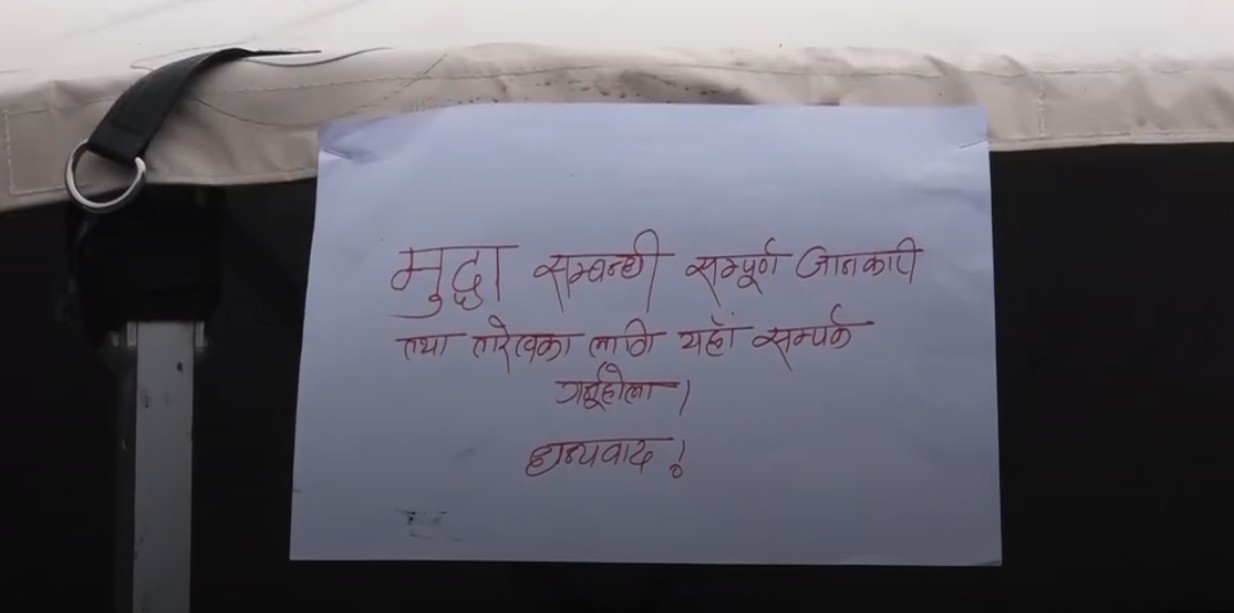 मुद्धा सम्बन्धी सम्पूर्ण जानकारी
तथा तारेखका लागि यहाँ सम्पर्क
गर्नुहोला।
धन्यवाद !